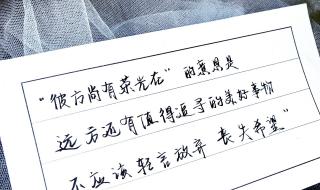 “彼方尚有荣光在”的意思是
远方还有值得追寻的美好事物
不应该轻言放弃 丧失希望”